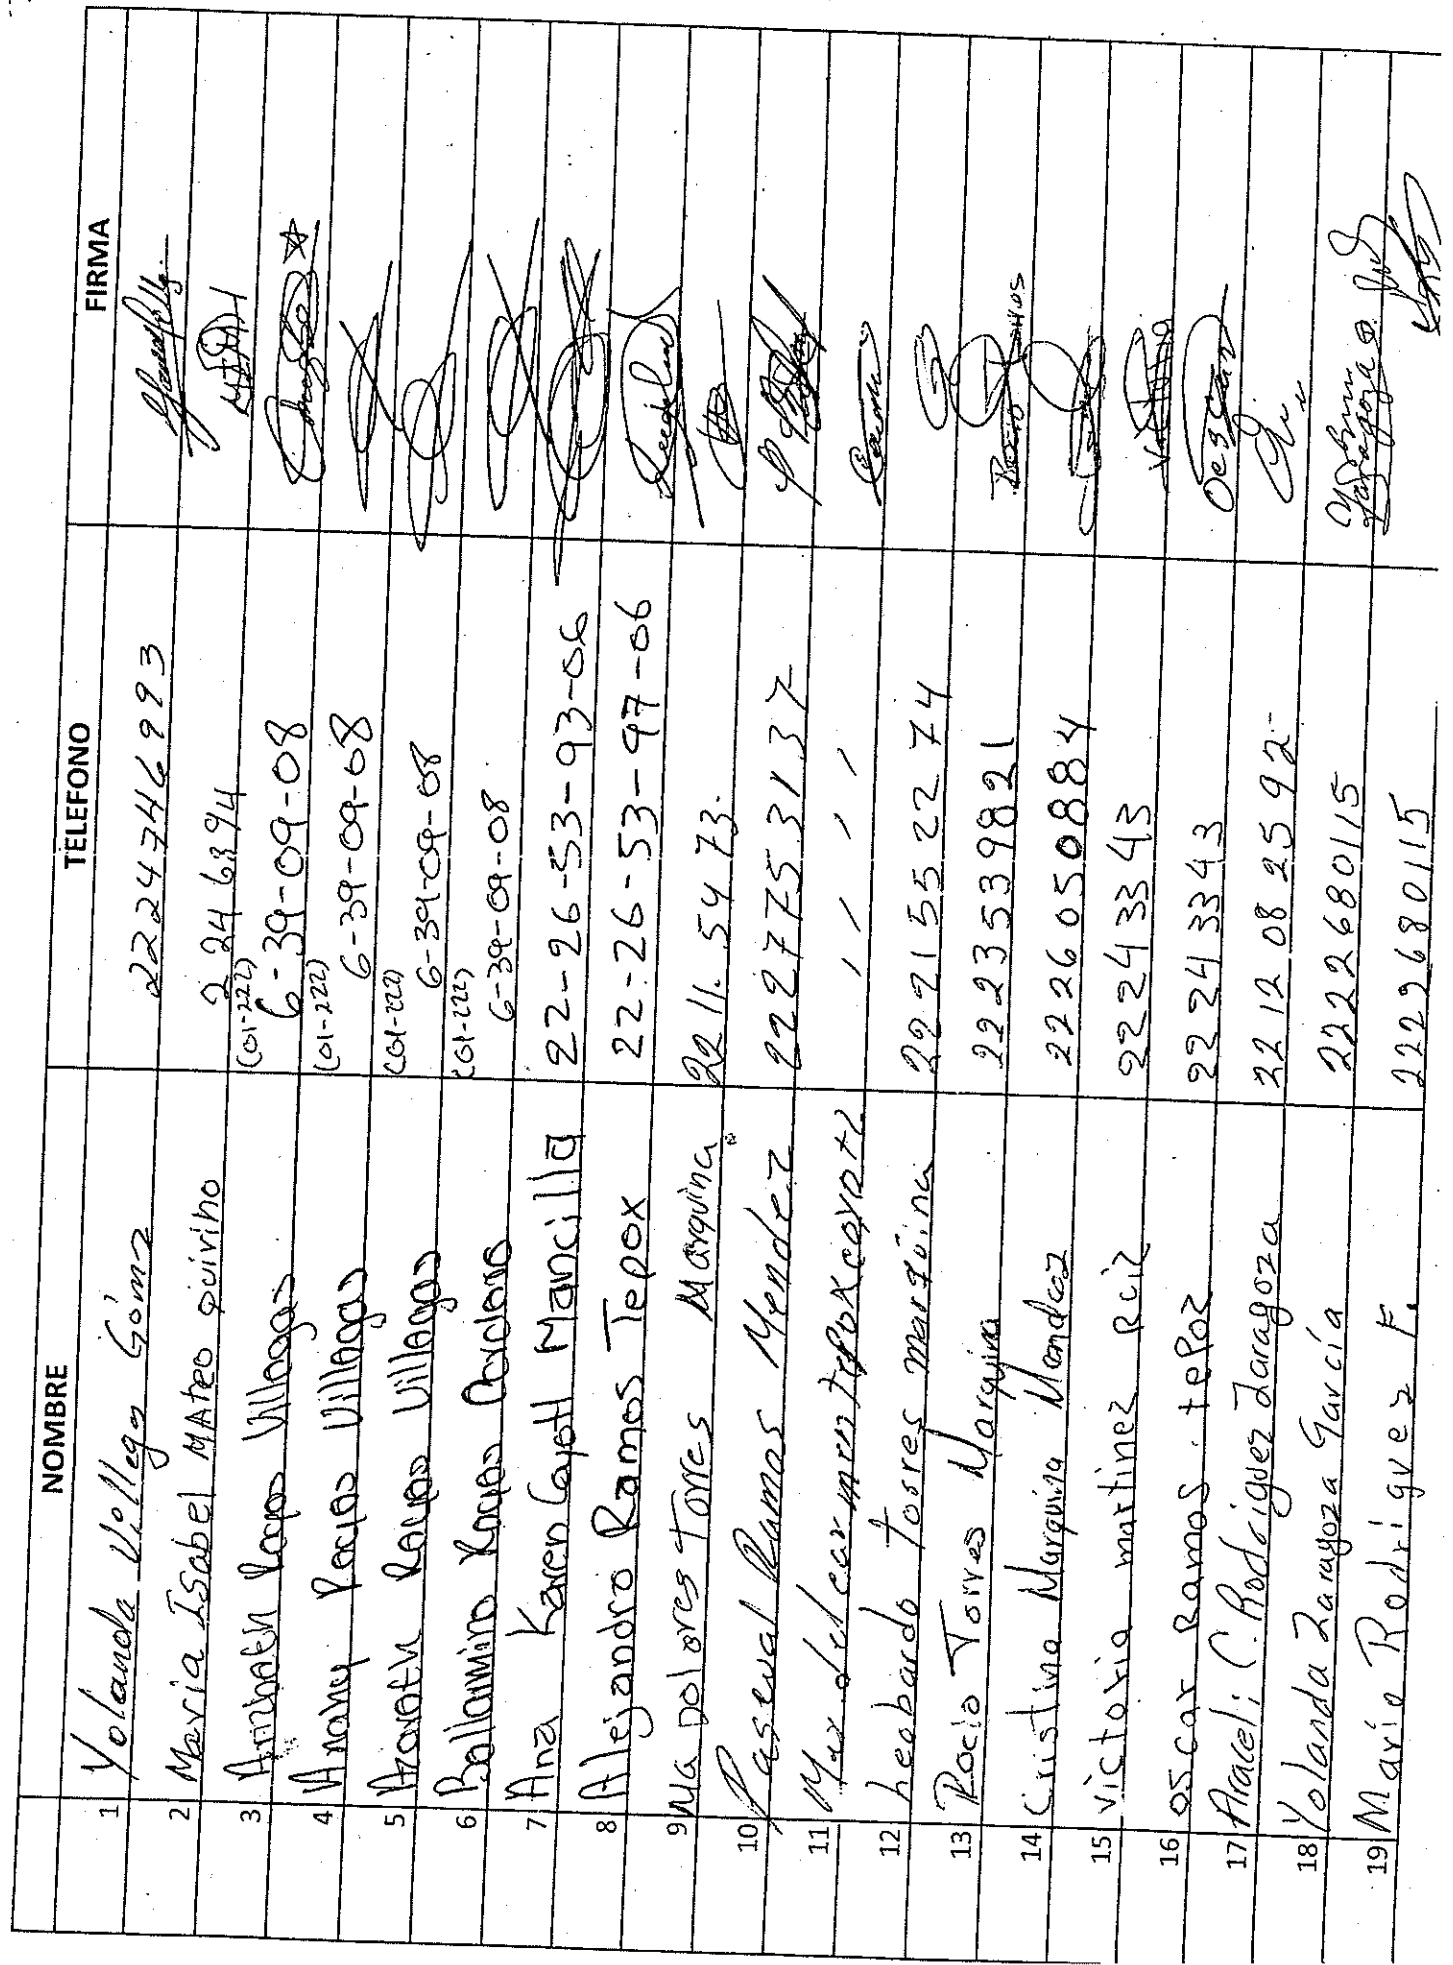 NOMBRE TELEFONO FIRMA
1 Yolanda Villegas Gómz 2224746993
2 Maria Isabel MAteo quiviho 2 24 6394
3 Rojas Villegas (01-222) 6-39-09-08
4 Anahy Rojas Villegas (01-222) 6-39-09-08
5 Rojas Villegas (01-222) 6-39-09-08
6 Rojas (01-222) 6-39-09-08
7 Ana Karen Coyotl Mancilla 22-26-53-93-06
8 Alejandro Ramos Tepox 22-26-53-97-06
9 Ma Dolores Torres Marquina 2211.5473.
10 Pascual Ramos Mendez 2227753137
11 Mar del carmen tepox coyotl , , , , ,
12 Leobardo torres marquina 2221552274
13 Rocio Torres Marquina 2223539821 Rocio
14 Cristina Marquina Mendez 2226050884
15 victoria martinez Rciz 222433343 victoria
16 oscar Ramos. tepoz 22243343 Oescar
17 Araceli C. Rodriguez Zaragoza 2212082592-
18 Yolanda Zaragoza García 2222680115 Zaragoza
19 Mario Rodríguez F. 2222680115